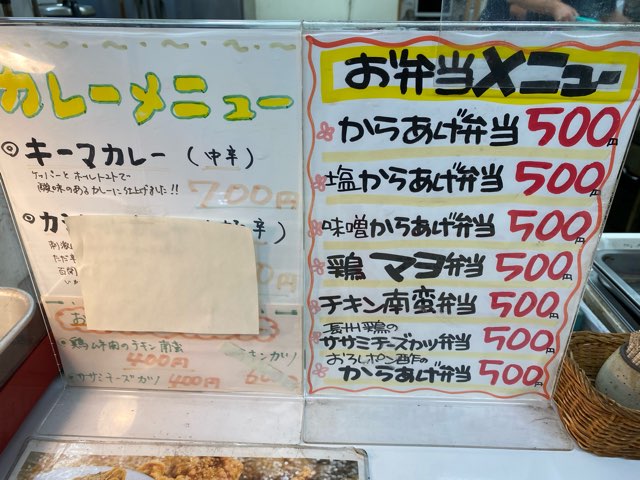 カレーメニュー
◎キーマカレー (中辛)
ケッパーとホールトマトで
酸味のあるカレーに仕上げました!!
700円
◎カ
辛)
円
お
・鶏ムネ肉のチキン南蛮
400円
チキンカツ
・ササミチーズカツ 400円
お弁当メニュー
からあげ弁当 500円
塩からあげ弁当 500円
味噌からあげ弁当 500円
鶏マヨ弁当 500円
チキン南蛮弁当 500円
長州鶏の
ササミチーズカツ弁当 500円
おろしポン酢の
からあげ弁当 500円